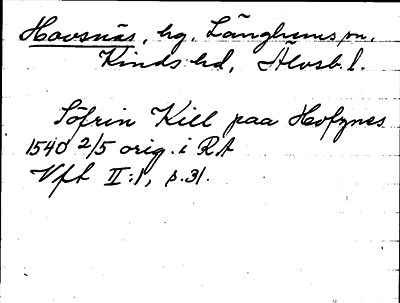 Hovsnäs, hg, Länghems sn,
Kinds hd, Älvsb. l.
Söfrin Kill paa Hofznes
1540 2/5 orig. i RA
Vft II:1, s.31.